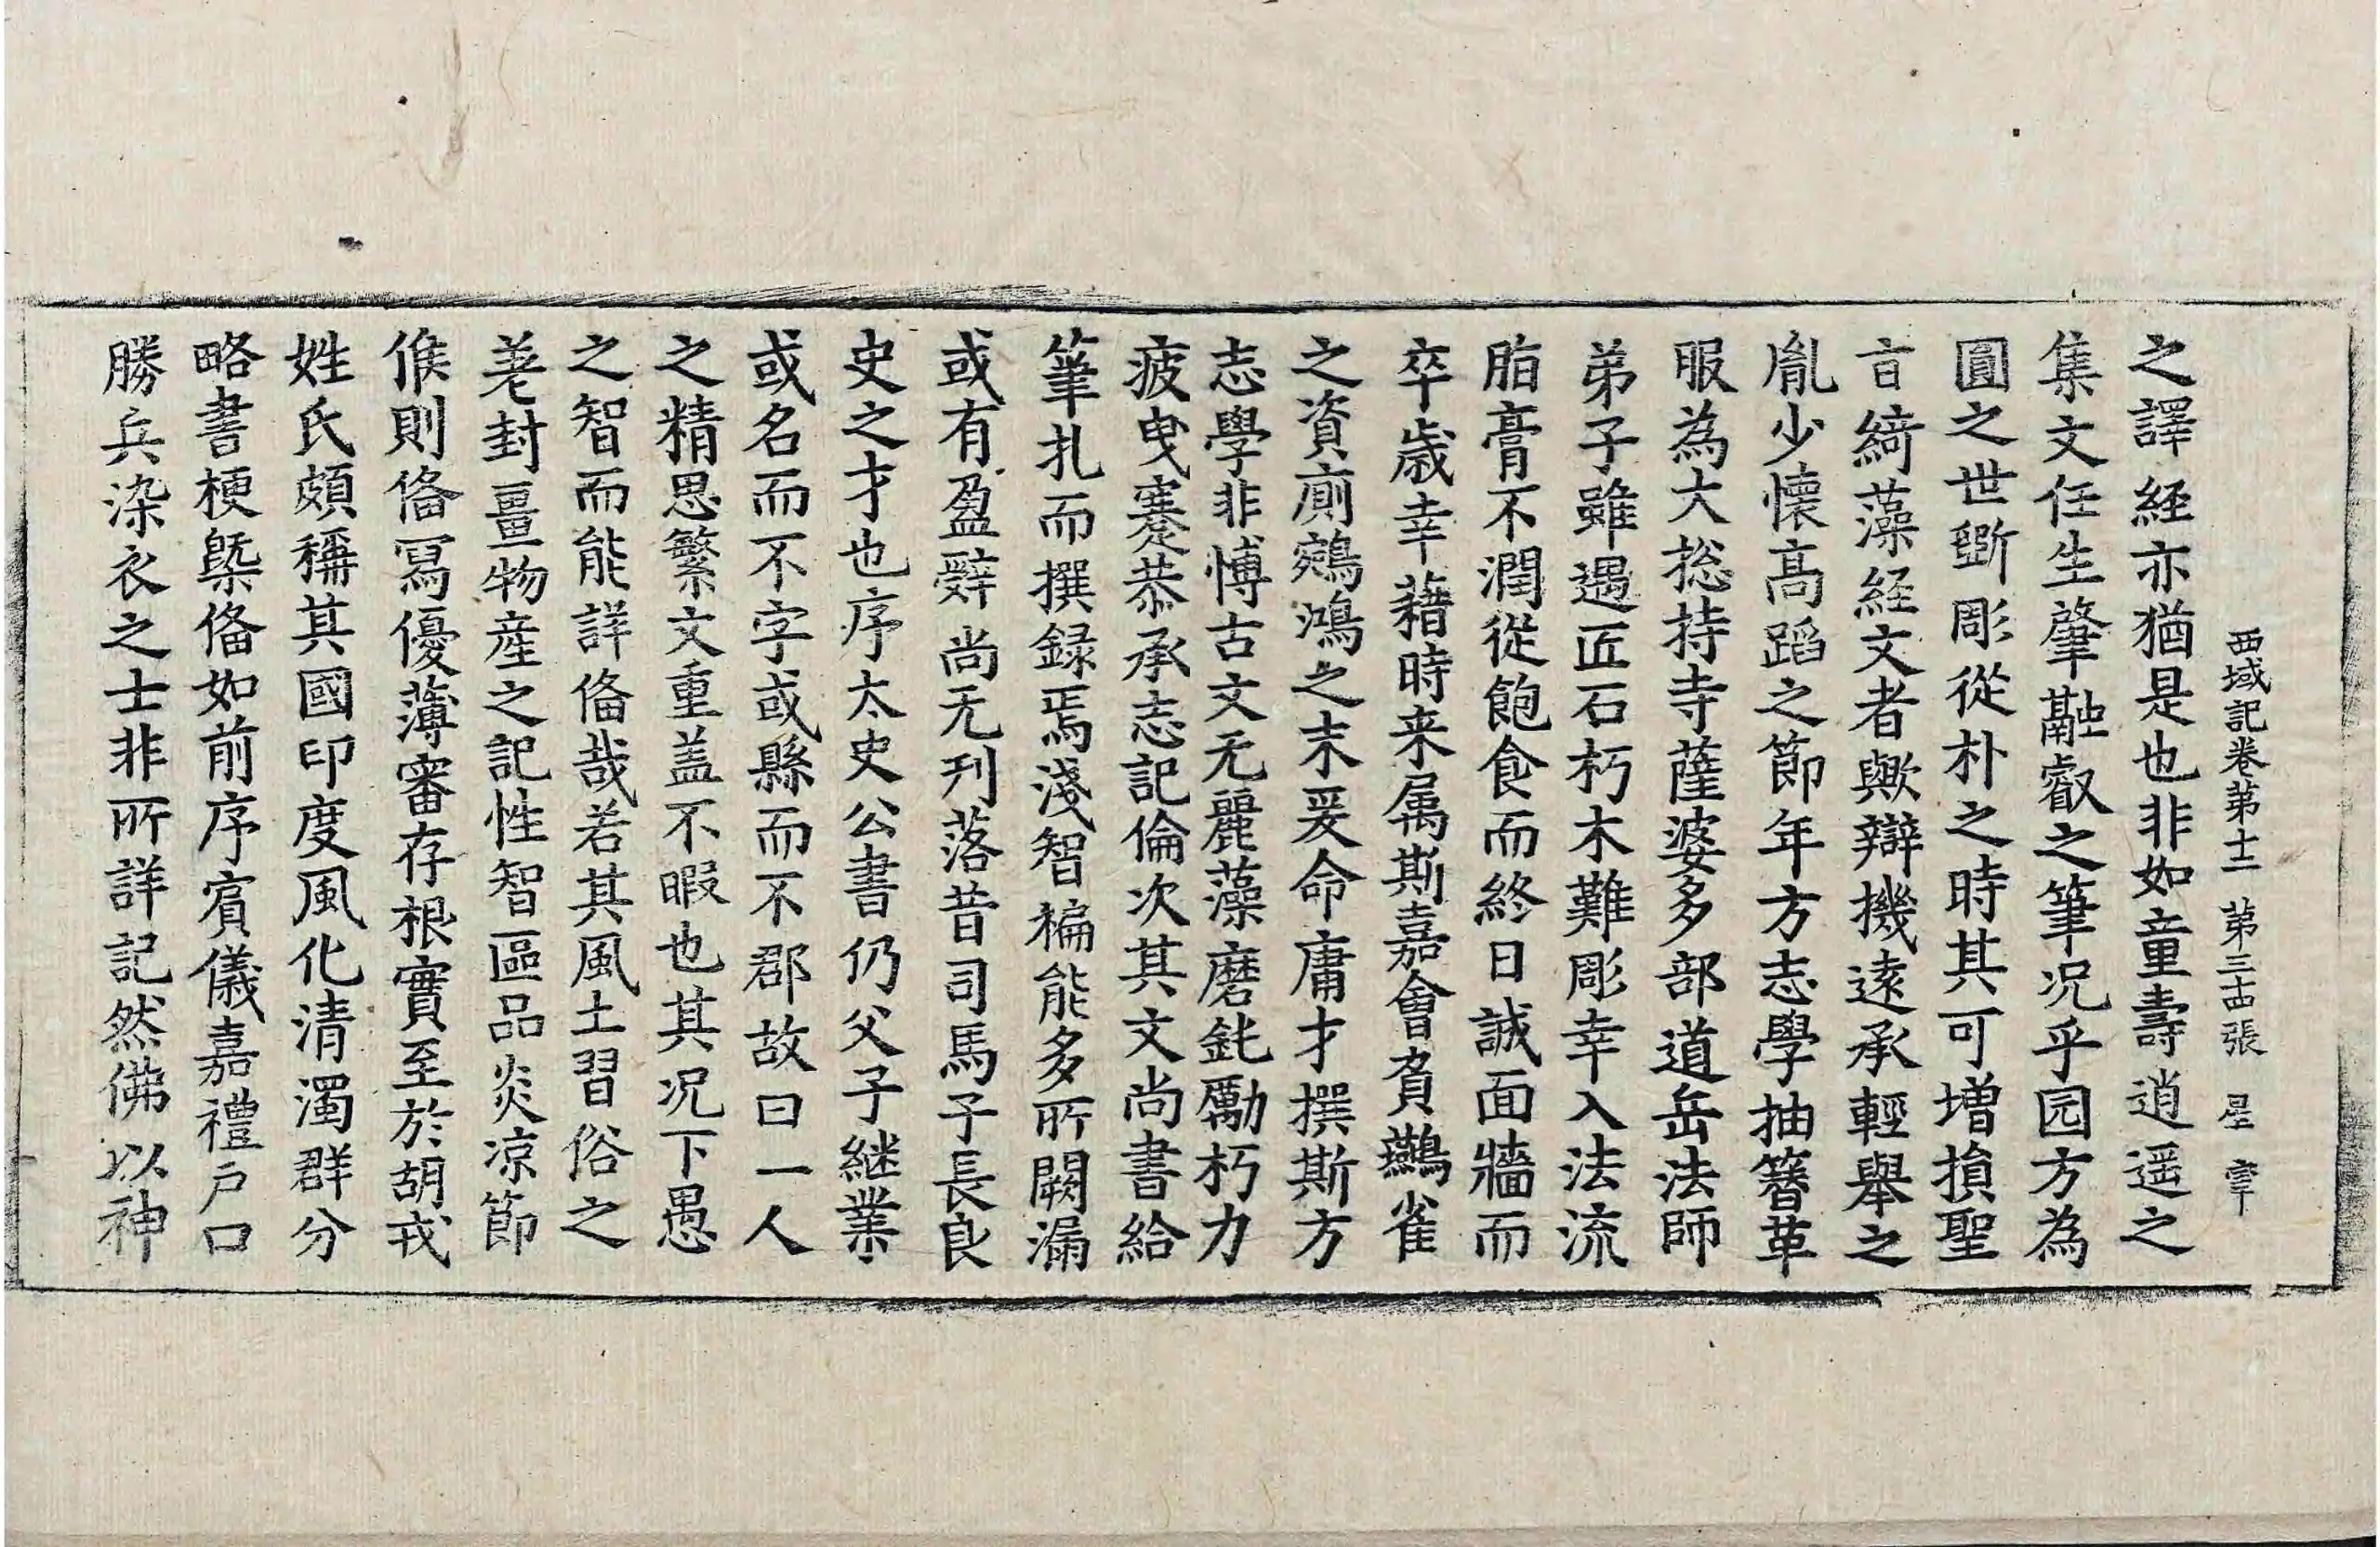 西域記卷第十二 第三古張 星 宰
之譯経亦猶是也非如童壽逍遥之
集文任生肇融叡之筆况乎园方為
圓之世斲彫從朴之時其可增損聖
言綺藻経文者歟辯機遠承輕舉之
胤少懐高蹈之節年方志學抽簪革
服為大捴持寺薩婆多部道岳法師
弟子雖遇匠石朽木難彫幸入法流
脂膏不潤徒飽食而終日誠面牆而
卒歳幸藉時来属斯嘉會負鷰雀
之資廁鵷鴻之末爰命庸才撰斯方
志學非博古文无麗藻磨鈍勵朽力
疲曳蹇恭承志記倫次其文尚書給
筆札而撰録焉淺智褊能多所闕漏
或有盈辭尚无刋落昔司馬子長良
史之才也序太史公書仍父子継業
或名而不字或縣而不郡故曰一人
之精思繁文重盖不暇也其况下愚
之智而能詳俻哉若其風土習俗之
差封畺物産之記性智區品炎凉節
候則俻冩優薄審存根實至於胡戎
姓氏頗稱其國印度風化清濁群分
略書梗槩俻如前序賔儀嘉禮户口
勝兵染衣之士非所詳記然佛以神